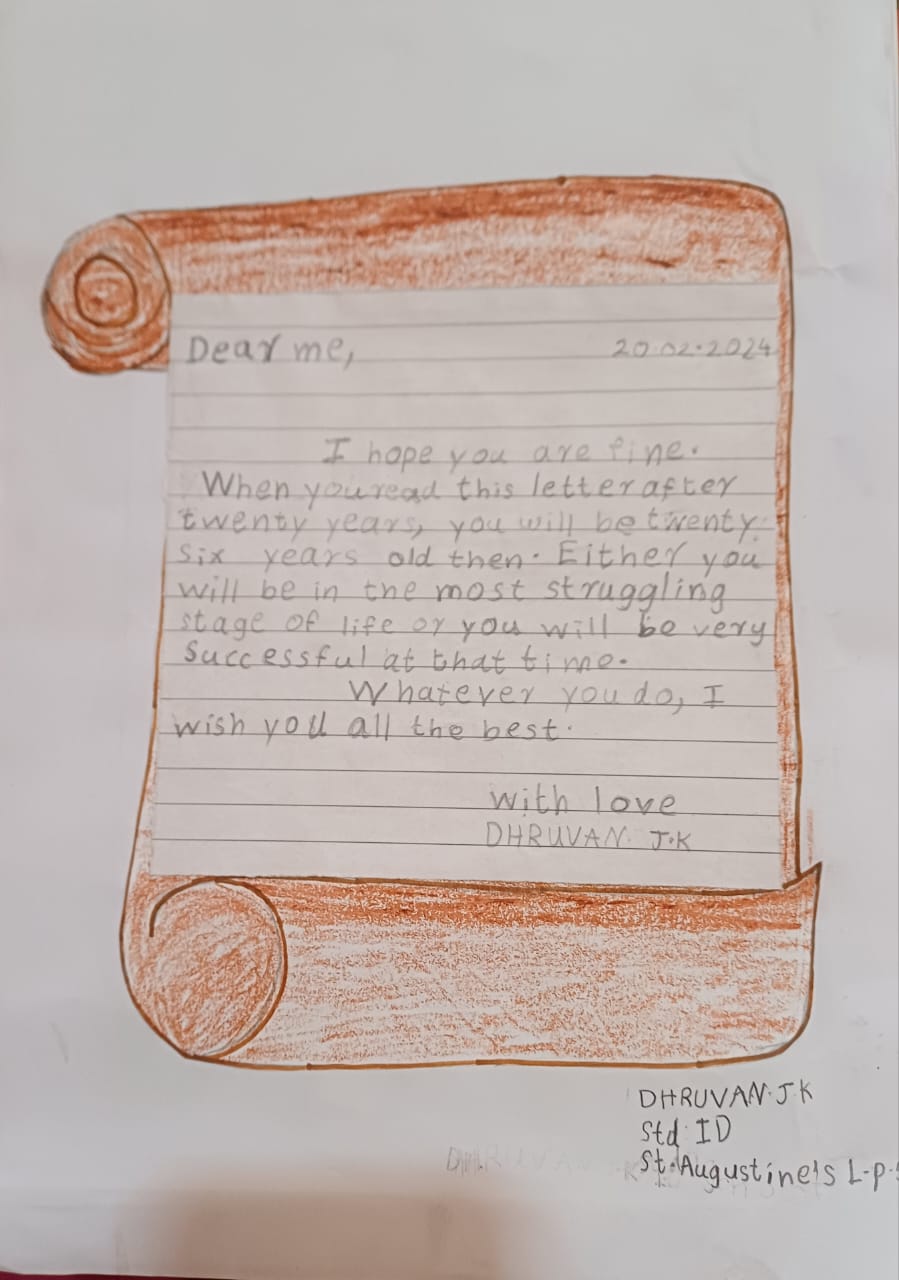 Dear me, 20.02.2024
I hope you are fine.
When you read this letter after
twenty years, you will be twenty
six years old then. Either you
will be in the most struggling
stage of life or you will be very
successful at that time.
Whatever you do, I
wish you all the best.
with love
DHRUVAN. J.K
DHRUVAN. J.K
Std ID
St. Augustine's L.p.